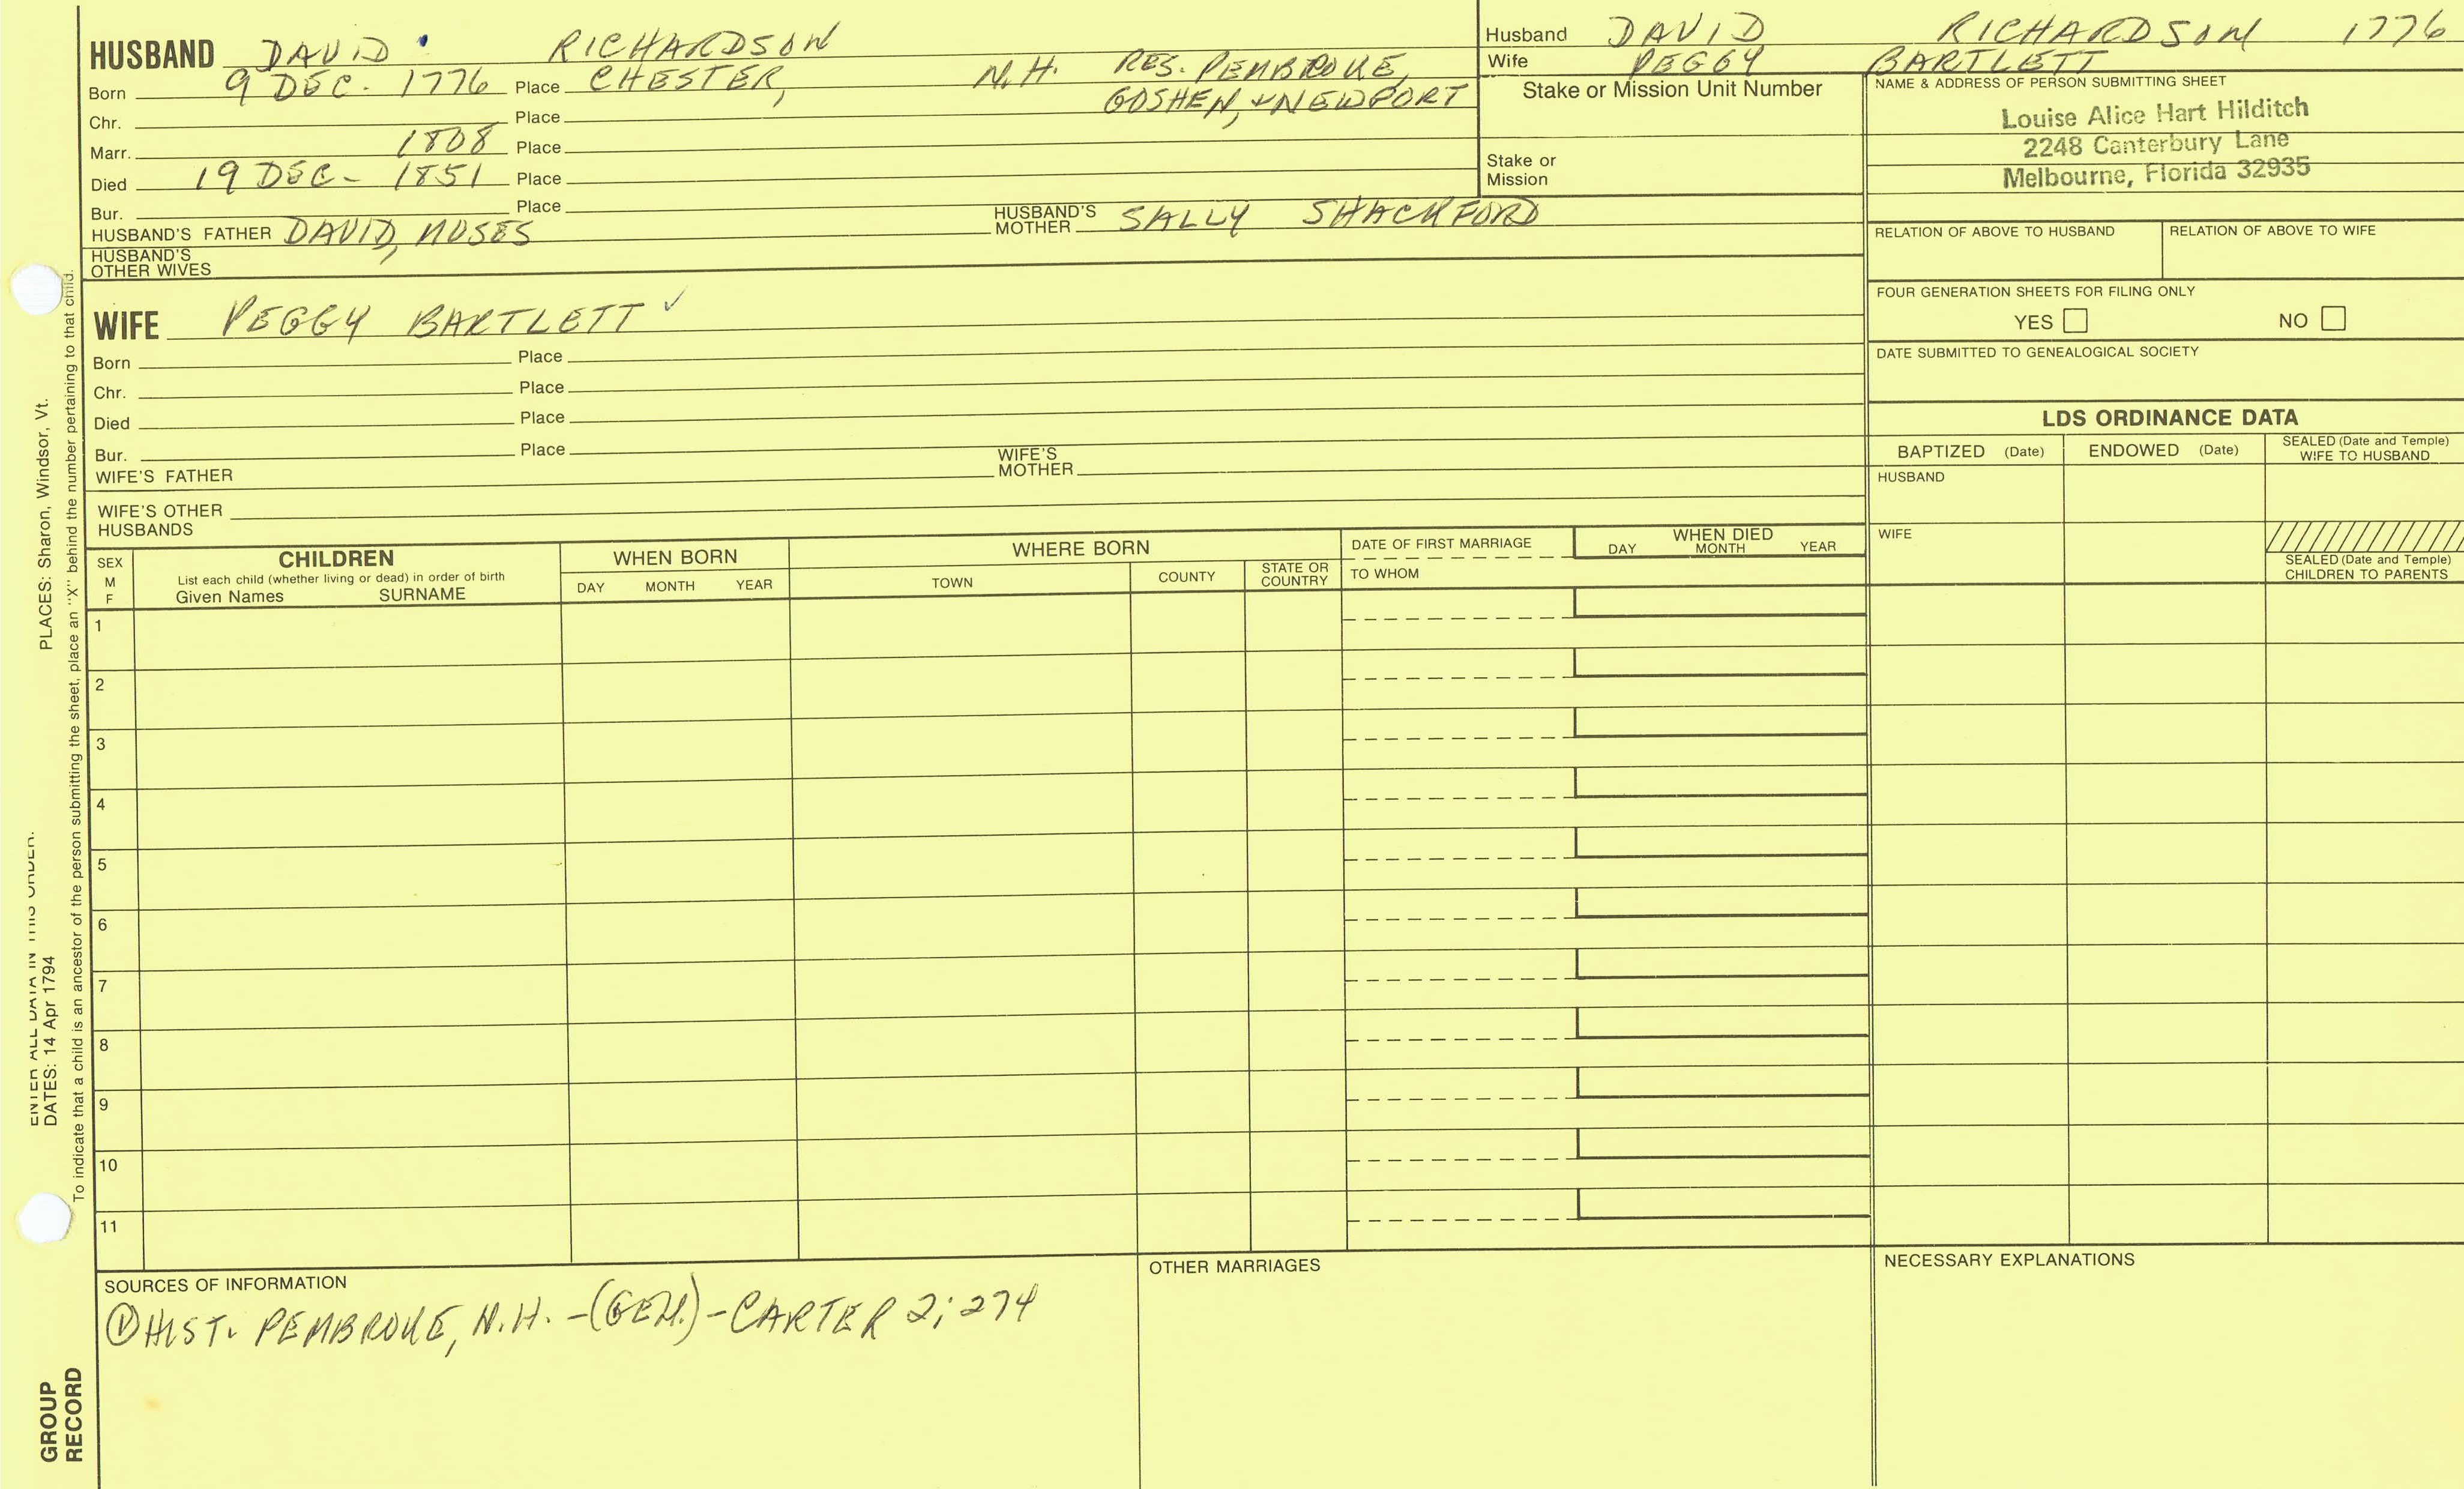 HUSBAND DAVID RICHARDSON
Born 9 DEC. 1776 Place CHESTER, N.H. RES. PEMBROKE,
GOSHEN, & NEWPORT
Chr. Place
Marr. 1808 Place
Died 19 DEC - 1851 Place
Bur. Place
HUSBAND'S FATHER DAVID, MOSES HUSBAND'S MOTHER SALLY SHACKFORD
HUSBAND'S OTHER WIVES
WIFE PEGGY BARTLETT ✓
Born Place
Chr. Place
Died Place
Bur. Place
WIFE'S FATHER WIFE'S MOTHER
WIFE'S OTHER HUSBANDS
Husband DAVID RICHARDSON 1776
Wife PEGGY BARTLETT
Stake or Mission Unit Number
Stake or Mission
NAME & ADDRESS OF PERSON SUBMITTING SHEET
Louise Alice Hart Hilditch
2248 Canterbury Lane
Melbourne, Florida 32935
RELATION OF ABOVE TO HUSBAND RELATION OF ABOVE TO WIFE
FOUR GENERATION SHEETS FOR FILING ONLY
YES NO
DATE SUBMITTED TO GENEALOGICAL SOCIETY
LDS ORDINANCE DATA
BAPTIZED (Date) ENDOWED (Date) SEALED (Date and Temple) WIFE TO HUSBAND
HUSBAND
WIFE
SEALED (Date and Temple)
CHILDREN TO PARENTS
SEX M F
CHILDREN
List each child (whether living or dead) in order of birth
Given Names SURNAME
WHEN BORN
DAY MONTH YEAR
WHERE BORN
TOWN COUNTY STATE OR COUNTRY
DATE OF FIRST MARRIAGE
TO WHOM
WHEN DIED
DAY MONTH YEAR
1
2
3
4
5
6
7
8
9
10
11
SOURCES OF INFORMATION
① HIST. PEMBROKE, N.H. - (GEN.) - CARTER 2; 274
OTHER MARRIAGES
NECESSARY EXPLANATIONS
ENTER ALL DATA IN THIS ORDER:
DATES: 14 Apr 1794 PLACES: Sharon, Windsor, Vt.
To indicate that a child is an ancestor of the person submitting the sheet, place an "X" behind the number pertaining to that child.
GROUP
RECORD